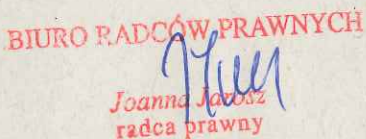 BIURO RADCÓW PRAWNYCH
Joanna Jarosz
radca prawny